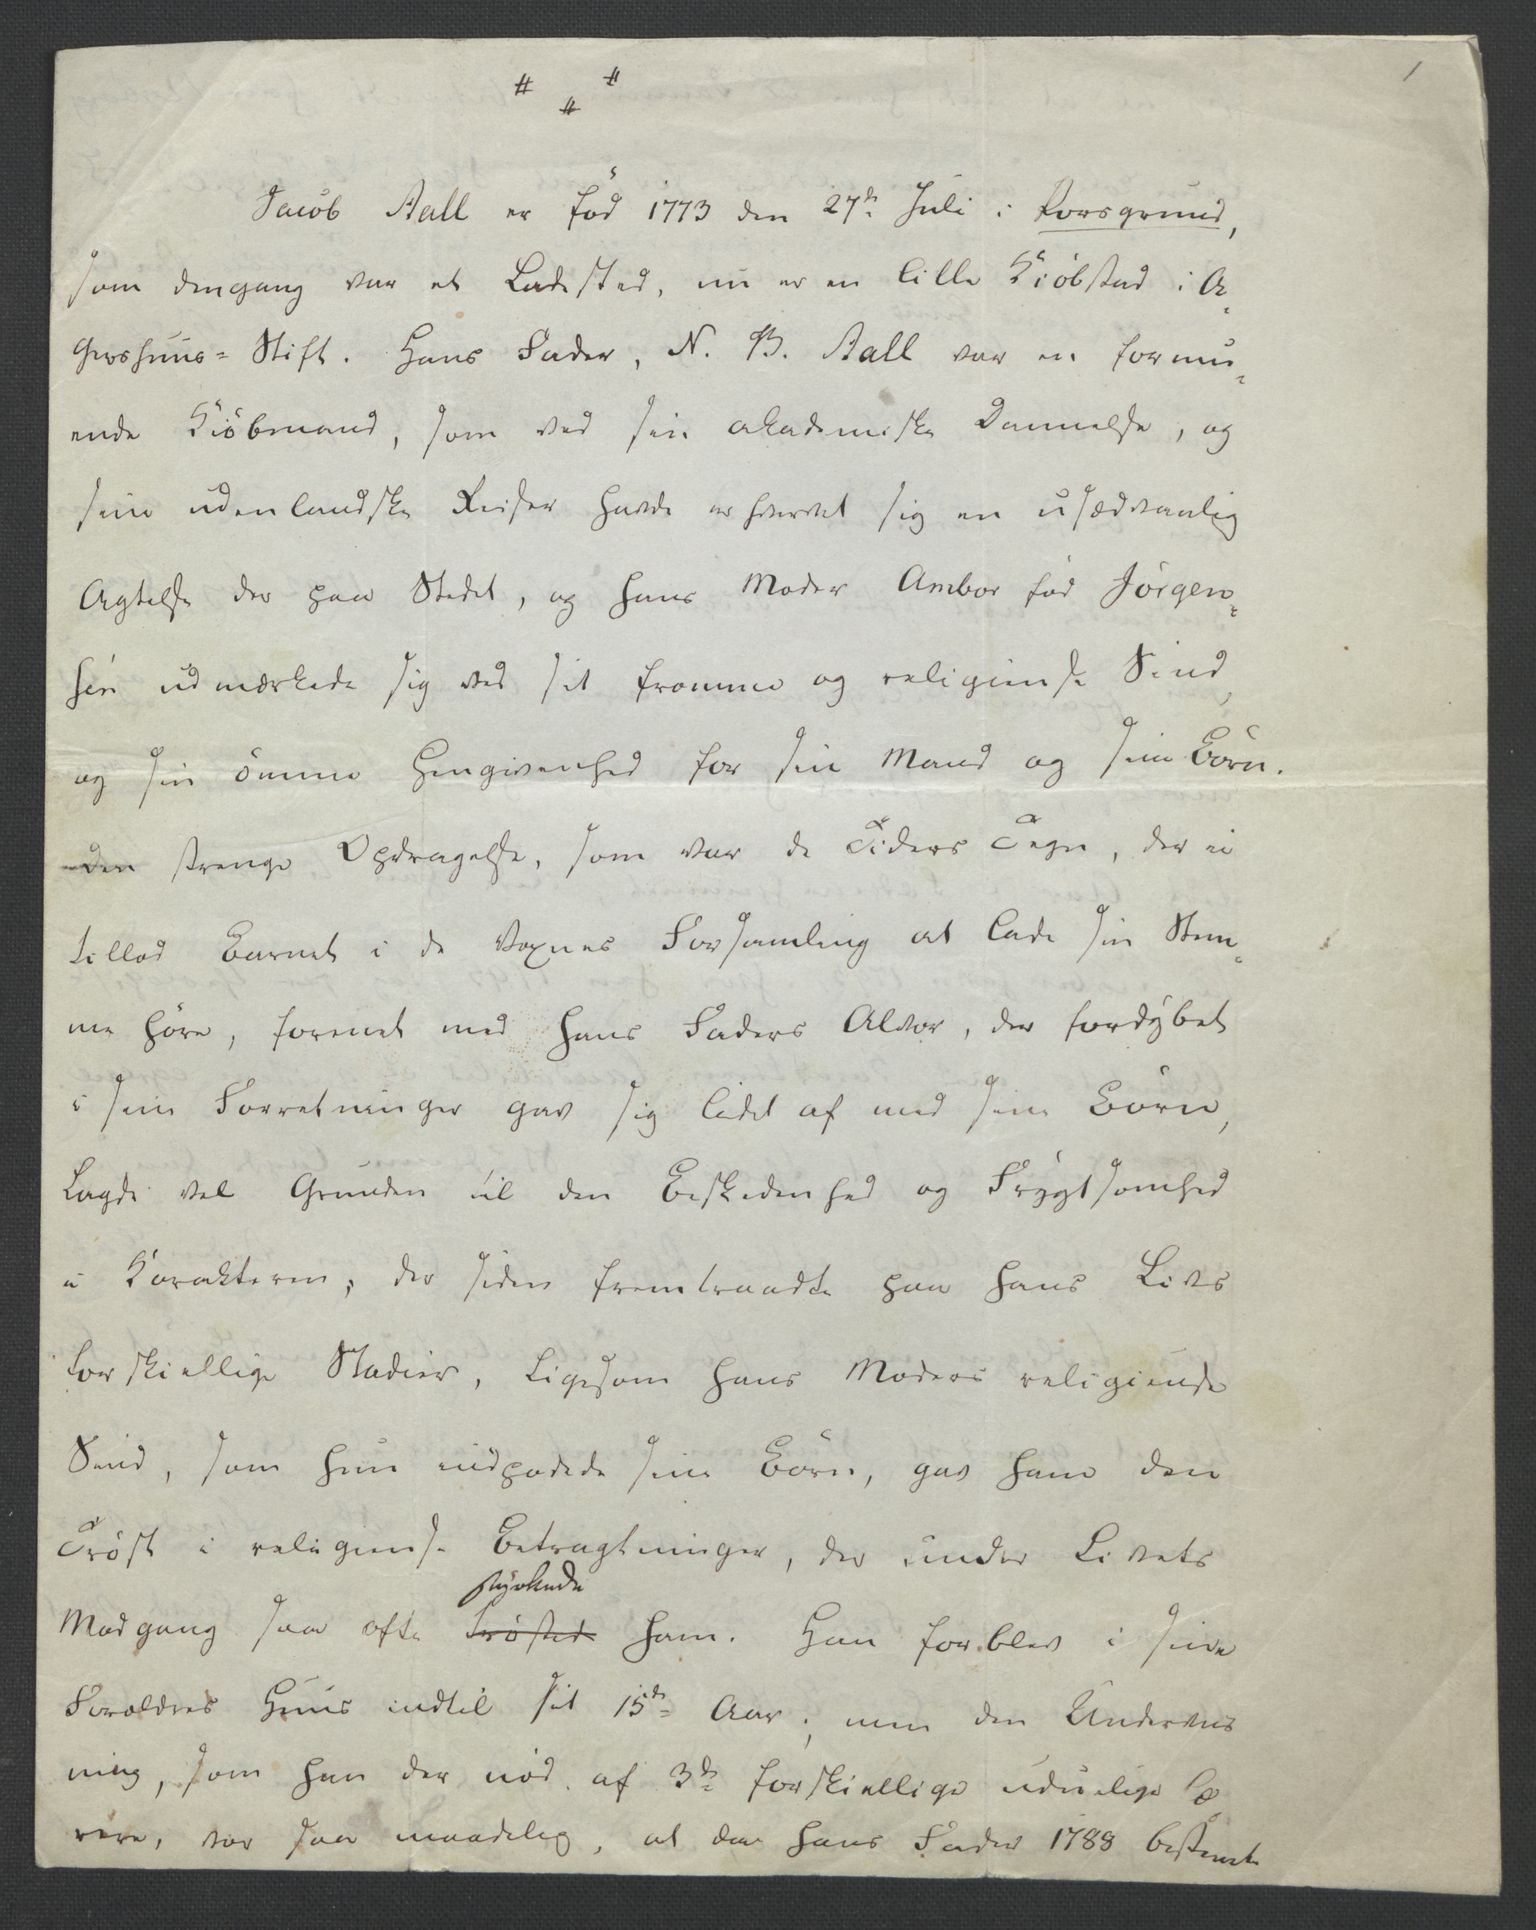 # # #
1
Jacob Aall er fød 1773 den 27de Juli i Porsgrund,
som dengang var et Ladested, nu er en lille Kiöbstad i A-
gershuus-Stift. Hans Fader, N. B. Aall var en formu-
ende Kiöbmand, som ved sin akademiske Dannelse, og
sine udenlandske Reiser havde erhvervet sig en usædvanlig
Agtelse der paa Stedet, og hans Moder Ambor föd Jörgen-
sen udmærkede sig ved sit fromme og religieuse Sind,
og sin ömme Hengivenhed for sin Mand og sine Börn.
Den strenge Opdragelse, som var de Tiders Tegn, der ei
tillod Barnet i de Voxnes Forsamling at lade sin Stem-
me höre, forenet med hans Faders Alvor, der fordybet
i sine Forretninger gav sig lidet af med sine Börn,
Lagde vel Grunden til den Beskedenhed og Frygtsomhed
i Karakteren, der siden fremtraadte paa hans Livs
forskiellige Stadier, Ligesom hans Moders religieuse
Sind, som hun indpodede sine Börn, gav ham den
Tröst i religieuse Betragtninger, der under Livets
styrkede
Modgang saa ofte tröstede ham. Han forblev i sine
Forældres Huus indtil sit 15de Aar; men den Underviis
ning, som han der nöd af 3de forskiellige uduelige Læ
rere, var saa maadelig, at da hans Fader 1788 bestemte